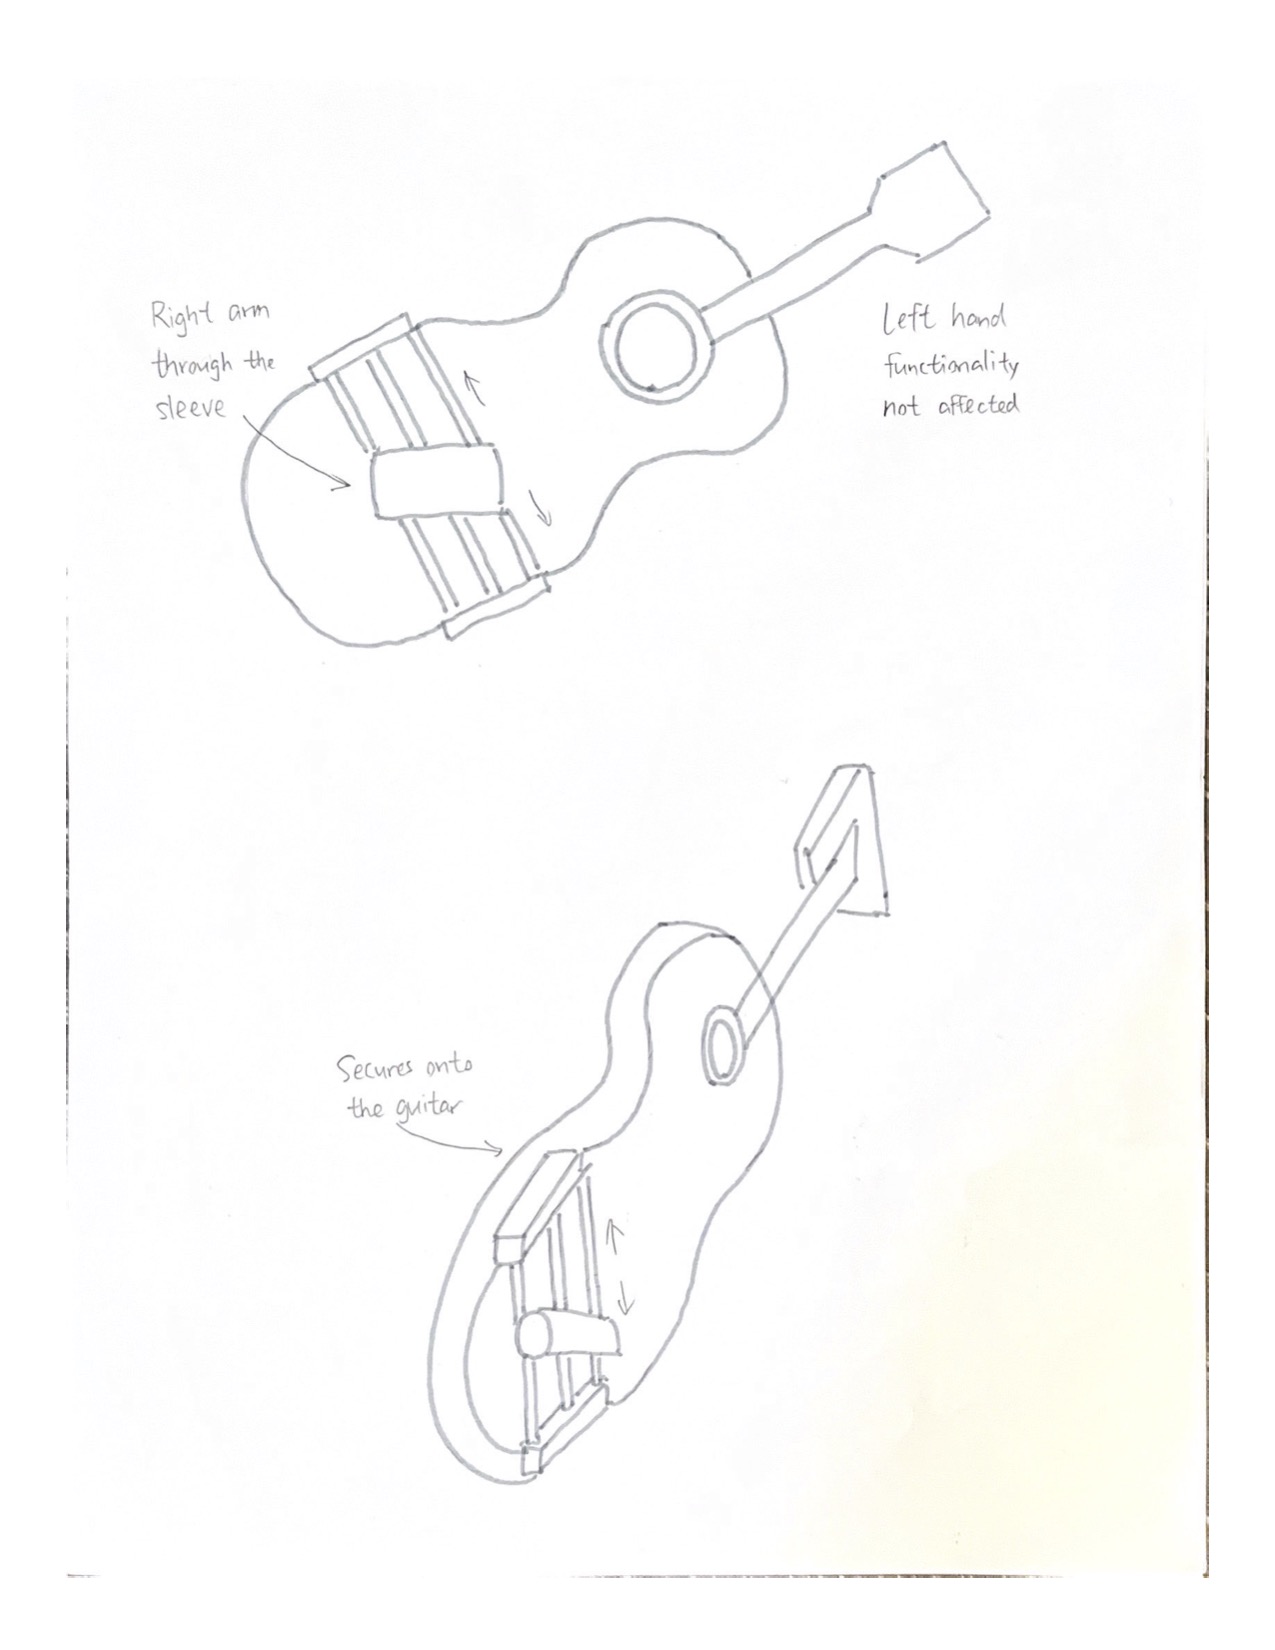 Right arm
through the
sleeve
Left hand
functionality
not affected
Secures onto
the guitar